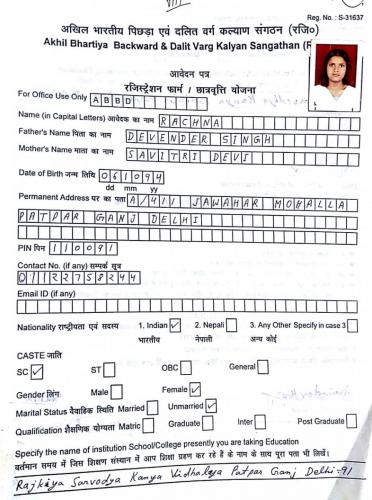 VIII
Reg. No. : S-31637
अखिल भारतीय पिछड़ा एवं दलित वर्ग कल्याण संगठन (रजि०)
Akhil Bhartiya Backward & Dalit Varg Kalyan Sangathan (R
आवेदन पत्र
रजिस्ट्रेशन फार्म / छात्रवृत्ति योजना
For Office Use Only ABBD
Name (in Capital Letters) आवेदक का नाम RACHNA
Father's Name पिता का नाम DEVENDER SINGH
Mother's Name माता का नाम SAVITRI DEVI
Date of Birth जन्म तिथि 061094
dd mm yy
Permanent Address घर का पता A/411 JAWAHAR MOHALLA
PATPAR GANJ DELHI
PIN पिन 110091
Contact No. (if any) सम्पर्क सूत्र
01122758244
Email ID (if any)
Nationality राष्ट्रीयता एवं सदस्य 1. Indian ✓ 2. Nepali 3. Any Other Specify in case 3
भारतीय नेपाली अन्य कोई
CASTE जाति
SC ✓ ST OBC General
Gender लिंग Male Female ✓
Marital Status वैवाहिक स्थिति Married Unmarried ✓
Qualification शैक्षणिक योग्यता Matric Graduate Inter Post Graduate
Specify the name of institution School/College presently you are taking Education
वर्तमान समय में जिस शिक्षण संस्थान में आप शिक्षा ग्रहण कर रहे हैं के नाम के साथ पूरा पता भी लिखें।
Rajkiya Sarvodya Kanya Vidhaleya Patpar Ganj Delhi-91